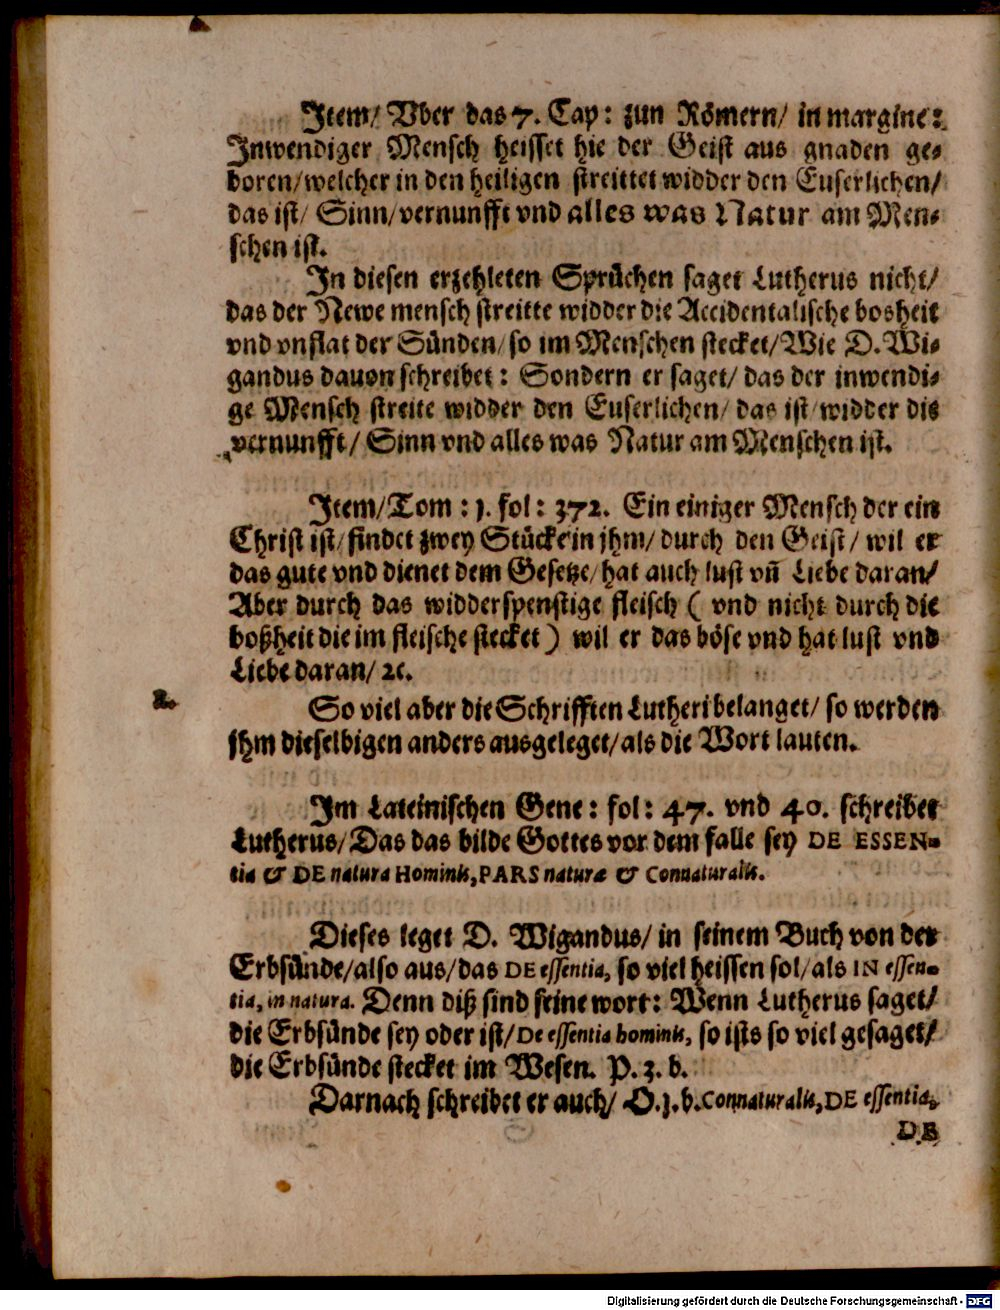 Item/ Vber das 7. Cap: zun Römern/ in margine:
Inwendiger Mensch heisset hie der Geist aus gnaden ge-
boren/welcher in den heiligen streittet widder den Euserlichen/
das ist/ Sinn/vernunfft vnd alles was Natur am Men-
schen ist.
In diesen erzehleten Sprüchen saget Lutherus nicht/
das der Newe mensch streitte widder die Accidentalische bosheit
vnd vnflat der Sünden/ so im Menschen stecket/Wie D. Wi-
gandus dauon schreibet: Sondern er saget/ das der inwendi-
ge Mensch streite widder den Euserlichen/ das ist/ widder die
vernunfft/ Sinn vnd alles was Natur am Menschen ist.
Item/Tom: 1. fol: 372. Ein einiger Mensch der ein
Christ ist/ findet zwey Stücke in jhm/ durch den Geist/ wil er
das gute vnd dienet dem Gesetze/ hat auch lust vñ Liebe daran/
Aber durch das widderspenstige fleisch ( vnd nicht durch die
boßheit die im fleische stecket ) wil er das böse vnd hat lust vnd
Liebe daran/ ꝛc.
2.
So viel aber die Schrifften Lutheri belanget/ so werden
jhm dieselbigen anders ausgeleget/als die Wort lauten.
Im Lateinischen Gene: fol: 47. vnd 40. schreibet
Lutherus/Das das bilde Gottes vor dem falle sey DE ESSEN-
tia & DE natura Hominis, PARS naturæ & Connaturalis.
Dieses leget D. Wigandus/ in seinem Buch von der
Erbsünde/also aus/das DE essentia, so viel heissen sol/als IN essen-
tia, in natura. Denn diß sind seine wort: Wenn Lutherus saget/
die Erbsünde sey oder ist/De essentia hominis, so ists so viel gesaget/
die Erbsünde stecket im Wesen. P. 3. b.
Darnach schreibet er auch/ O.3.b.Connaturalis, DE essentia,
DE
Digitalisierung gefördert durch die Deutsche Forschungsgemeinschaft - DFG